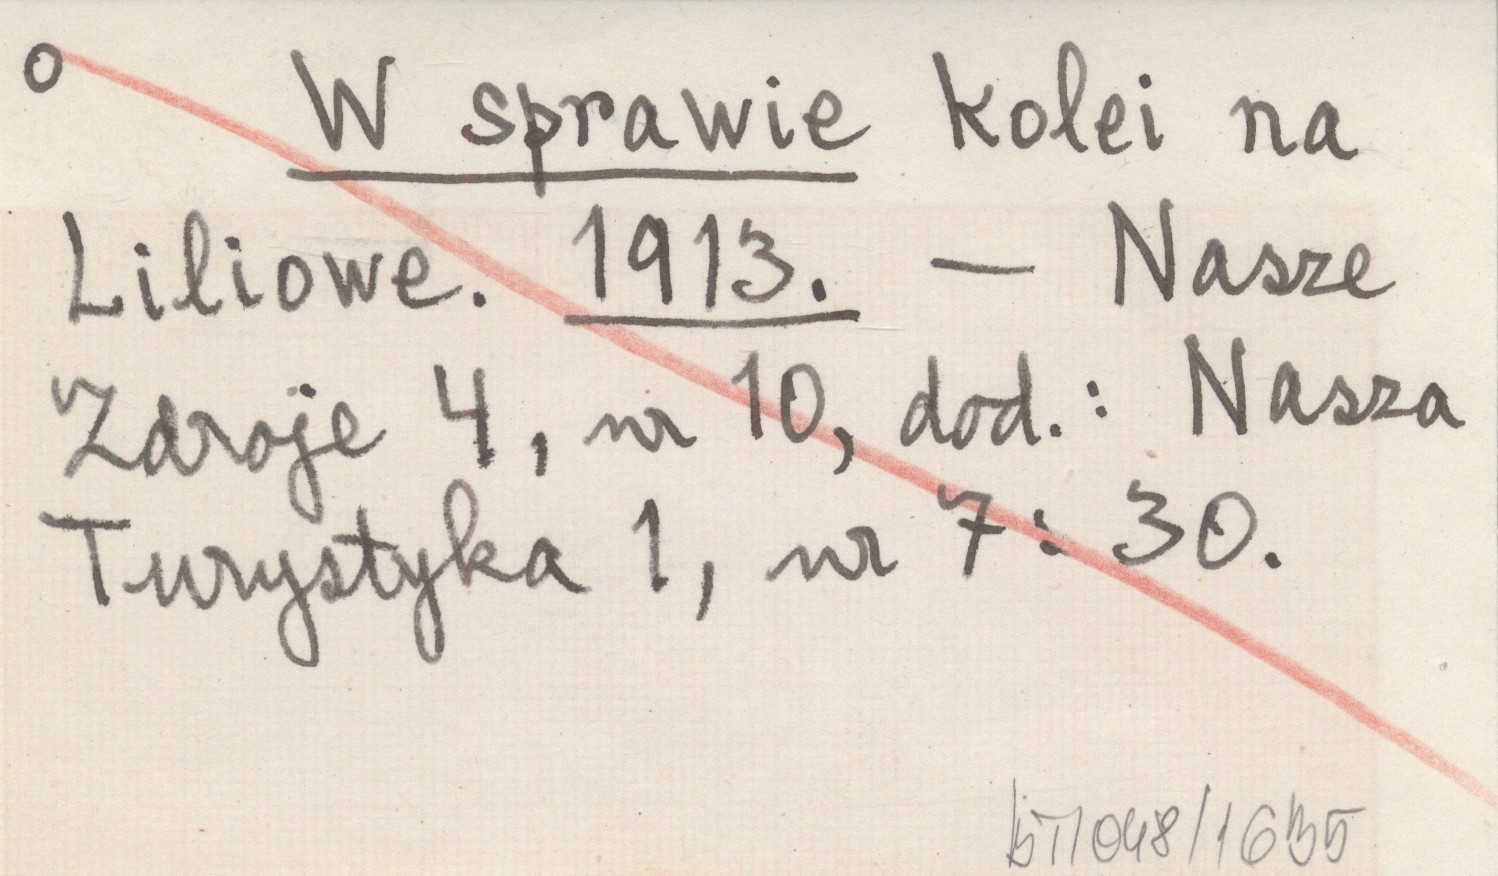 o W sprawie kolei na
Liliowe. 1913. — Nasze
Zdroje 4, nr 10, dod.: Nasza
Turystyka 1, nr 7: 30.
BT/048/1635